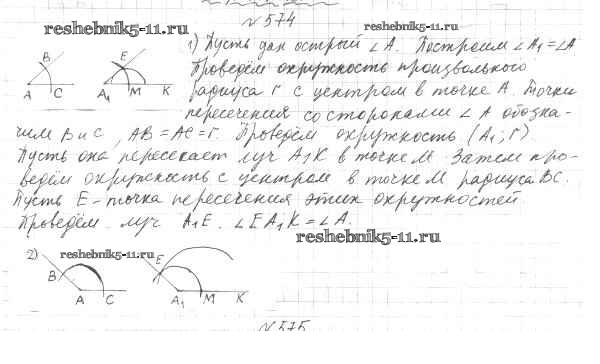 №574
reshebnik5-11.ru
reshebnik5-11.ru
1) Пусть дан острый ∠A. Построим ∠A₁=∠A
Проведём окружность произвольного
радиуса r с центром в точке A. Точки
пересечения со сторонами ∠A обозна-
чим B и C, AB=AC=r. Проведём окружность (A₁; r)
Пусть она пересекает луч A₁K в точке M. Затем про-
ведём окружность с центром в точке M радиуса BC.
Пусть E-точка пересечения этих окружностей
Проведём луч A₁E. ∠EA₁K=∠A.
reshebnik5-11.ru
B
A
C
E
A₁
M
K
2)
reshebnik5-11.ru
B
A
C
E
A₁
M
K
№575